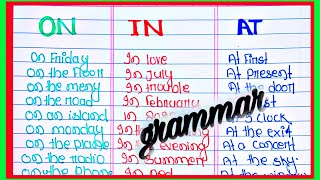 ON IN AT
On Friday In love At First
On the Floor In July At Present
On the meny In trouble At the door
On the Road In February
On an island In
On monday clock
On the Plane evening At the exit
On the Radio In Summer At a concert
On the Phone In At the sky
grammar